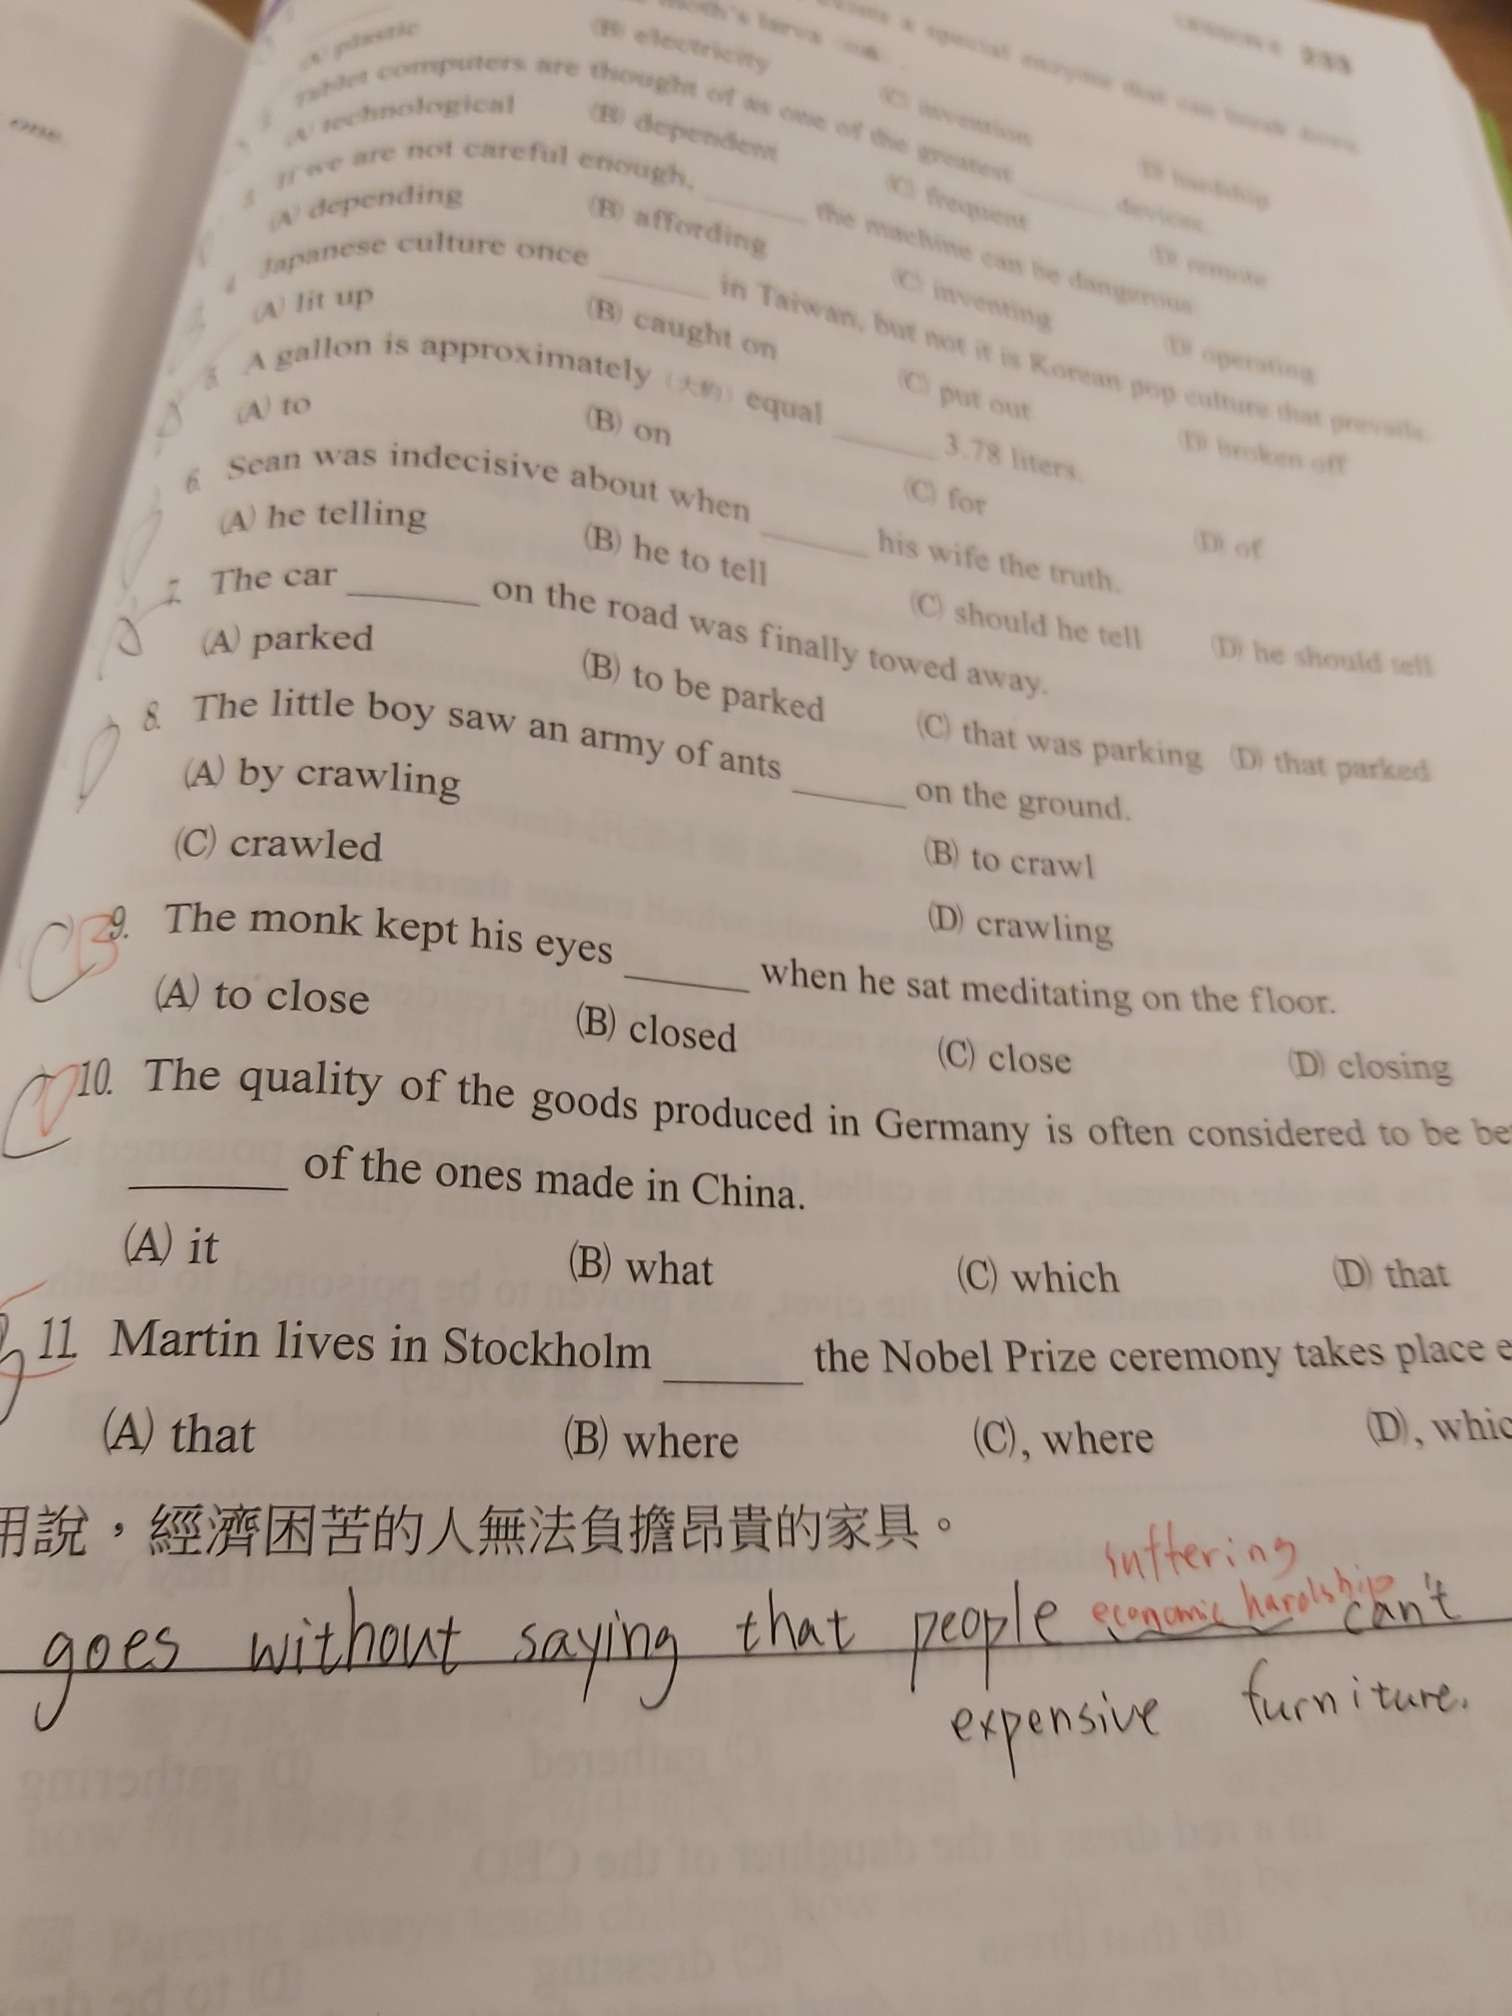 one.
233
a special enzyme that can break down
moth's larva
(A) plastic (B) electricity (C) invention (D) hardship
2. Tablet computers are thought of as one of the greatest ______ devices.
(A) technological (B) dependent (C) frequent (D) remote
3. If we are not careful enough, ______ the machine can be dangerous.
(A) depending (B) affording (C) inventing (D) operating
4. Japanese culture once ______ in Taiwan, but not it is Korean pop culture that prevails.
(A) lit up (B) caught on (C) put out (D) broken off
5. A gallon is approximately (大約) equal ______ 3.78 liters.
(A) to (B) on (C) for (D) of
6. Sean was indecisive about when ______ his wife the truth.
(A) he telling (B) he to tell (C) should he tell (D) he should tell
7. The car ______ on the road was finally towed away.
(A) parked (B) to be parked (C) that was parking (D) that parked
8. The little boy saw an army of ants ______ on the ground.
(A) by crawling (B) to crawl
(C) crawled (D) crawling
C B 9. The monk kept his eyes ______ when he sat meditating on the floor.
(A) to close (B) closed (C) close (D) closing
10. The quality of the goods produced in Germany is often considered to be
______ of the ones made in China.
(A) it (B) what (C) which (D) that
11. Martin lives in Stockholm ______ the Nobel Prize ceremony takes place
(A) that (B) where (C) , where (D) ,
用說，經濟困苦的人無法負擔昂貴的家具。
suffering
goes without saying that people economic hardship can't
expensive furniture.